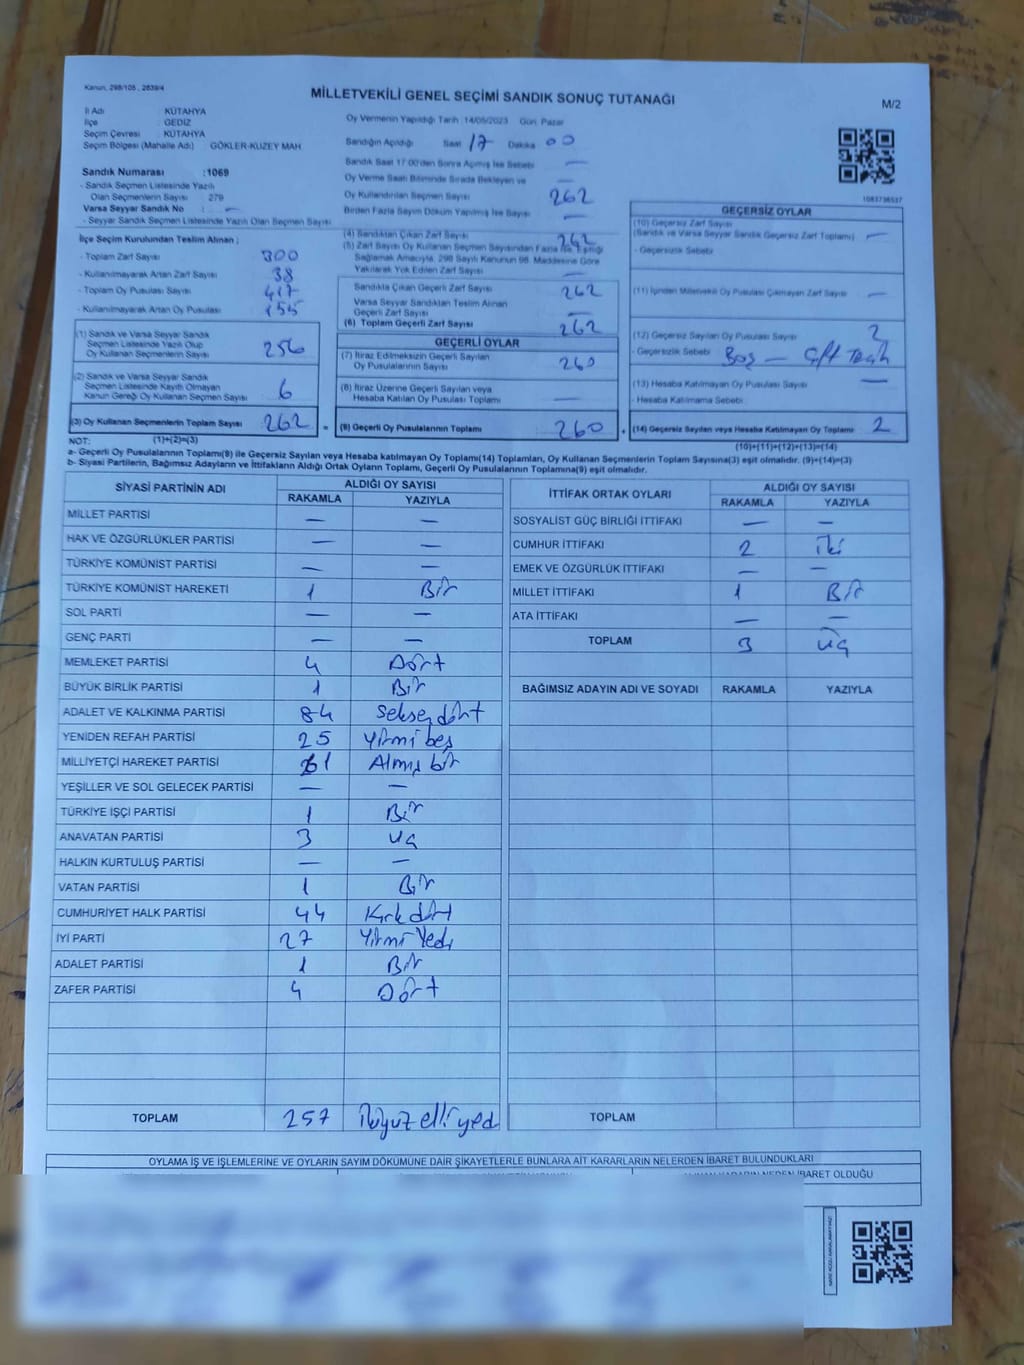 Kanun, 298/105 , 2839/4
MİLLETVEKİLİ GENEL SEÇİMİ SANDIK SONUÇ TUTANAĞI
M/2
İl Adı : KÜTAHYA
İlçe : GEDİZ
Seçim Çevresi : KÜTAHYA
Seçim Bölgesi (Mahalle Adı) GÖKLER-KUZEY MAH
Sandık Numarası :1069
- Sandık Seçmen Listesinde Yazılı
Olan Seçmenlerin Sayısı : 279
Varsa Seyyar Sandık No : —
- Seyyar Sandık Seçmen Listesinde Yazılı Olan Seçmen Sayısı
İlçe Seçim Kurulundan Teslim Alınan ;
- Toplam Zarf Sayısı 300
- Kullanılmayarak Artan Zarf Sayısı 38
- Toplam Oy Pusulası Sayısı 417
- Kullanılmayarak Artan Oy Pusulası 155
(1) Sandık ve Varsa Seyyar Sandık
Seçmen Listesinde Yazılı Olup
Oy Kullanan Seçmenlerin Sayısı 256
(2) Sandık ve Varsa Seyyar Sandık
Seçmen Listesinde Kayıtlı Olmayan
Kanun Gereği Oy Kullanan Seçmen Sayısı 6
(3) Oy Kullanan Seçmenlerin Toplam Sayısı 262 =
Oy Vermenin Yapıldığı Tarih :14/05/2023 Gün: Pazar
Sandığın Açıldığı Saat 17 Dakika 00
Sandık Saat 17:00'den Sonra Açılmış İse Sebebi —
Oy Verme Saati Bitiminde Sırada Bekleyen ve —
Oy Kullandırılan Seçmen Sayısı 262
Birden Fazla Sayım Döküm Yapılmış İse Sayısı —
(4) Sandıktan Çıkan Zarf Sayısı 262
(5) Zarf Sayısı Oy Kullanan Seçmen Sayısından Fazla İse, Eşitliği
Sağlamak Amacıyla, 298 Sayılı Kanunun 98. Maddesine Göre
Yakılarak Yok Edilen Zarf Sayısı —
Sandıkta Çıkan Geçerli Zarf Sayısı 262
Varsa Seyyar Sandıktan Teslim Alınan
Geçerli Zarf Sayısı —
(6) Toplam Geçerli Zarf Sayısı 262
GEÇERLİ OYLAR
(7) İtiraz Edilmeksizin Geçerli Sayılan
Oy Pusulalarının Sayısı 260
(8) İtiraz Üzerine Geçerli Sayılan veya
Hesaba Katılan Oy Pusulası Toplamı —
(9) Geçerli Oy Pusulalarının Toplamı 260 +
1083736537
GEÇERSİZ OYLAR
(10) Geçersiz Zarf Sayısı
(Sandık ve Varsa Seyyar Sandık Geçersiz Zarf Toplamı) —
- Geçersizlik Sebebi
(11) İçinden Milletvekili Oy Pusulası Çıkmayan Zarf Sayısı —
(12) Geçersiz Sayılan Oy Pusulası Sayısı 2
- Geçersizlik Sebebi Boş — çift
(13) Hesaba Katılmayan Oy Pusulası Sayısı —
- Hesaba Katılmama Sebebi
(14) Geçersiz Sayılan veya Hesaba Katılmayan Oy Toplamı 2
NOT: (1)+(2)=(3)
(10)+(11)+(12)+(13)=(14)
a- Geçerli Oy Pusulalarının Toplamı(9) ile Geçersiz Sayılan veya Hesaba katılmayan Oy Toplamı(14) Toplamları, Oy Kullanan Seçmenlerin Toplam Sayısına(3) eşit olmalıdır. (9)+(14)=(3)
b- Siyasi Partilerin, Bağımsız Adayların ve İttifakların Aldığı Ortak Oyların Toplamı, Geçerli Oy Pusulalarının Toplamına(9) eşit olmalıdır.
SİYASİ PARTİNİN ADI ALDIĞI OY SAYISI
RAKAMLA YAZIYLA
MİLLET PARTİSİ — —
HAK VE ÖZGÜRLÜKLER PARTİSİ — —
TÜRKİYE KOMÜNİST PARTİSİ — —
TÜRKİYE KOMÜNİST HAREKETİ 1 Bir
SOL PARTİ — —
GENÇ PARTİ — —
MEMLEKET PARTİSİ 4 Dört
BÜYÜK BİRLİK PARTİSİ 1 Bir
ADALET VE KALKINMA PARTİSİ 84 Seksendört
YENİDEN REFAH PARTİSİ 25 Yirmi beş
MİLLİYETÇİ HAREKET PARTİSİ 61 Altmış bir
YEŞİLLER VE SOL GELECEK PARTİSİ — —
TÜRKİYE İŞÇİ PARTİSİ 1 Bir
ANAVATAN PARTİSİ 3 üç
HALKIN KURTULUŞ PARTİSİ — —
VATAN PARTİSİ 1 Bir
CUMHURİYET HALK PARTİSİ 44 Kırk dört
İYİ PARTİ 27 Yirmi Yedi
ADALET PARTİSİ 1 Bir
ZAFER PARTİSİ 4 Dört
TOPLAM 257 İkiyüz elli yedi
İTTİFAK ORTAK OYLARI ALDIĞI OY SAYISI
RAKAMLA YAZIYLA
SOSYALİST GÜÇ BİRLİĞİ İTTİFAKI — —
CUMHUR İTTİFAKI 2 İki
EMEK VE ÖZGÜRLÜK İTTİFAKI — —
MİLLET İTTİFAKI 1 Bir
ATA İTTİFAKI — —
TOPLAM 3 üç
BAĞIMSIZ ADAYIN ADI VE SOYADI RAKAMLA YAZIYLA
TOPLAM
OYLAMA İŞ VE İŞLEMLERİNE VE OYLARIN SAYIM DÖKÜMÜNE DAİR ŞİKAYETLERLE BUNLARA AİT KARARLARIN NELERDEN İBARET BULUNDUKLARI
İBARET OLDUĞU